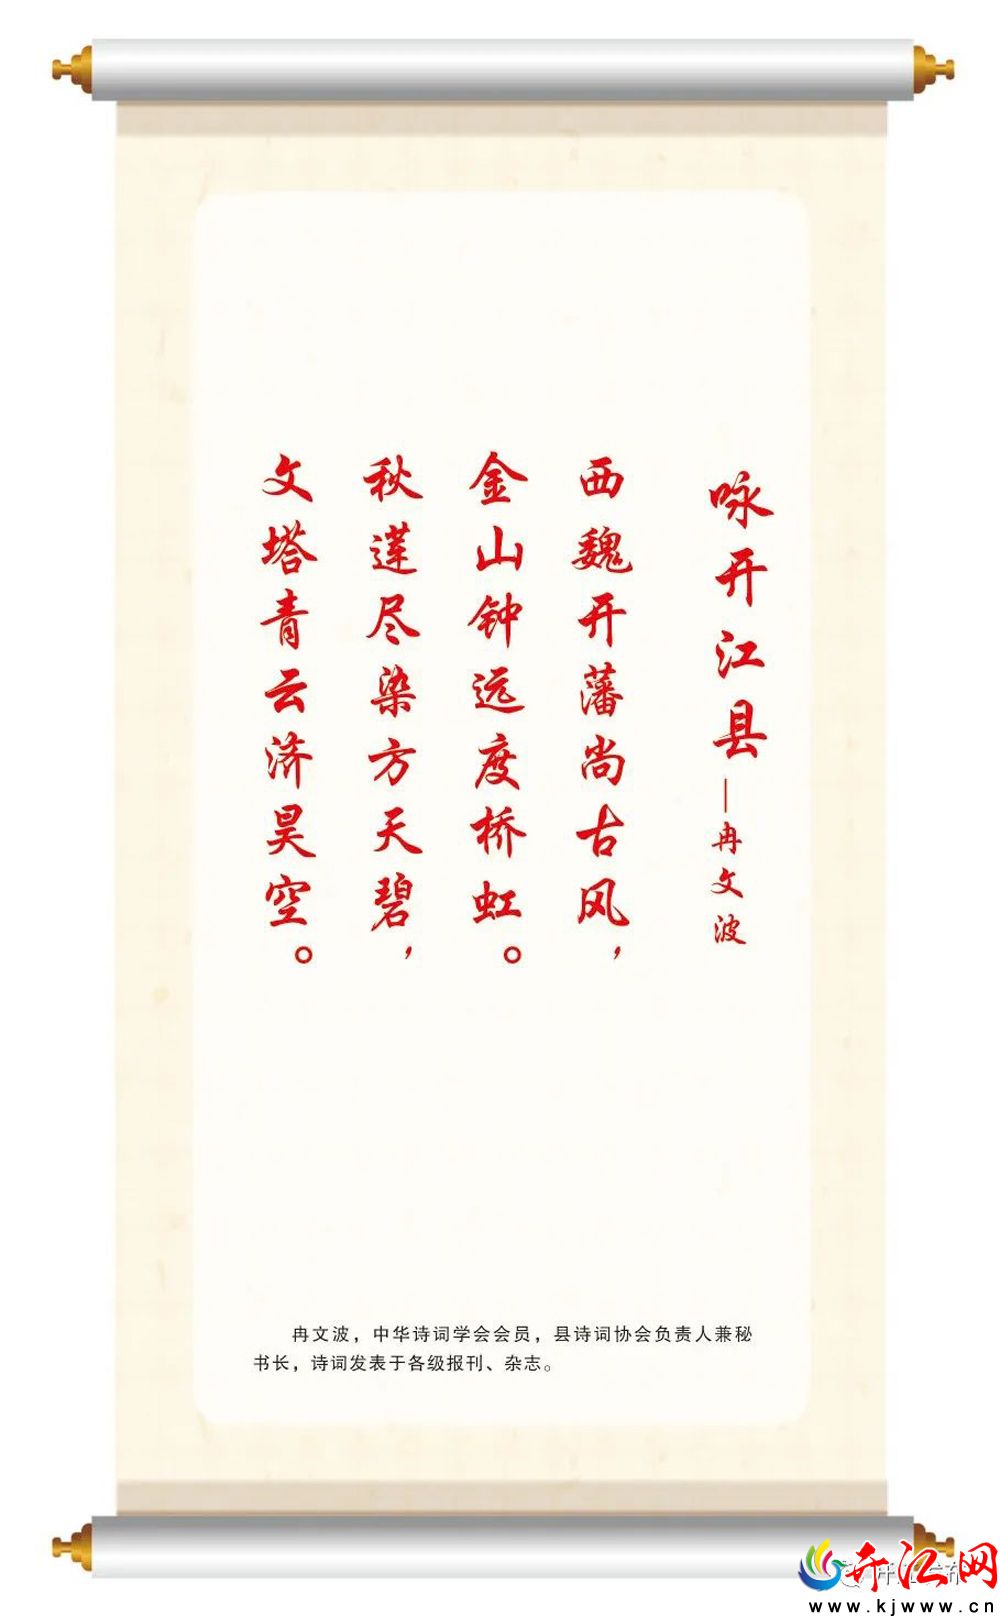 咏开江县——冉文波
西魏开藩尚古风，
金山钟远度桥虹。
秋莲尽染方天碧，
文塔青云济昊空。
冉文波，中华诗词学会会员，县诗词协会负责人兼秘
书长，诗词发表于各级报刊、杂志。
开江网
www.kjwww.cn